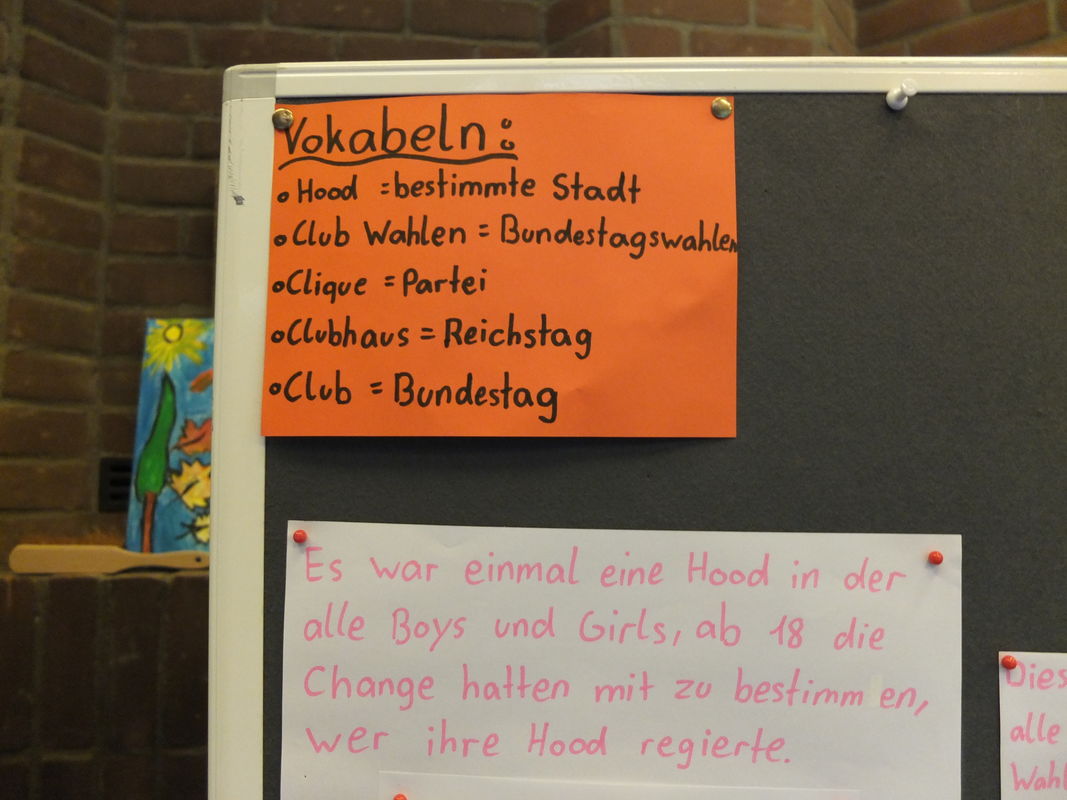 Vokabeln:
• Hood = bestimmte Stadt
• Club Wahlen = Bundestagswahlen
• Clique = Partei
• Clubhaus = Reichstag
• Club = Bundestag
Es war einmal eine Hood in der
alle Boys und Girls, ab 18 die
Change hatten mit zu bestimmen,
wer ihre Hood regierte.
Dies
alle
Wahl